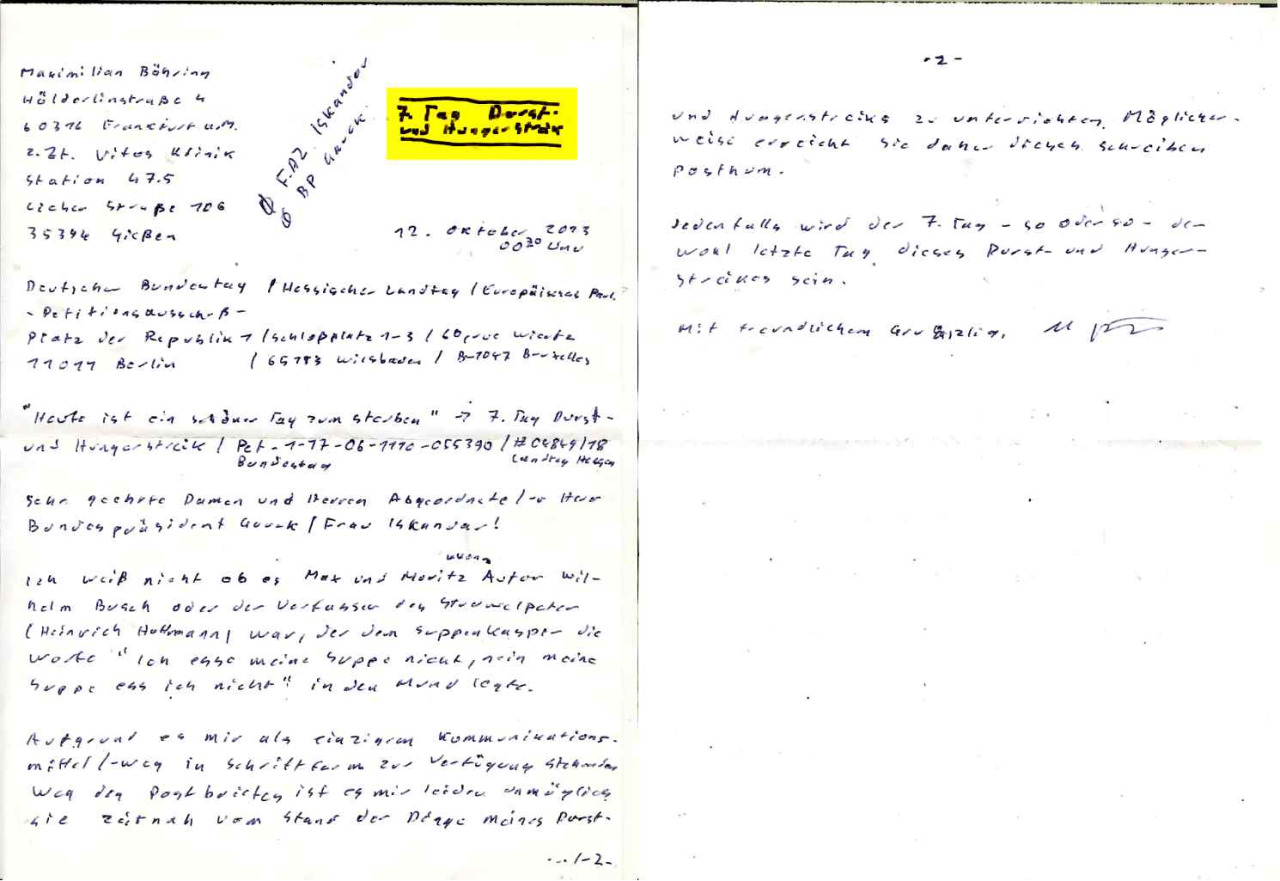 Maximilian Bähring
Hölderlinstraße 4
60316 Frankfurt a.M.
z.Zt. Vitos Klinik
Station 47.5
Licher Straße 106
35394 Gießen
F.AZ. Iskandar
BP Gauck
7. Tag Durst-
und Hungerstreik
12. Oktober 2013
00:30 Uhr
Deutscher Bundestag / Hessischer Landtag / Europäisches Parl.
- Petitionsausschuß -
Platz der Republik 1 / Schloßplatz 1-3 / 60, rue Wiertz
11011 Berlin / 65183 Wiesbaden / B-1047 Bruxelles
"Heute ist ein schöner Tag zum sterben" → 7. Tag Durst-
und Hungerstreik / Pet-1-17-06-1110-055390 / #04849/18
Bundestag Landtag Hessen
Sehr geehrte Damen und Herren Abgeordnete/-r Herr
Bundespräsident Gauck / Frau Iskandar!
Ich weiß nicht ob es Max und Moritz Autor Wil-
helm Busch oder der Verfasser des Struwelpeter
(Heinrich Hoffmann) war, der dem Suppenkasper die
Worte "Ich esse meine Suppe nicht, nein meine
Suppe ess ich nicht" in den Mund legte.
Aufgrund es mir als einzigem Kommunikations-
mittel/-weg in Schriftform zur Verfügung stehenden
Weg des Postbriefes ist es mir leider unmöglich
sie zeitnah vom Stand der Dinge meines Durst-
.../-2-
-2-
und Hungerstreiks zu unterrichten. Möglicher-
weise erreicht Sie daher dieses schreiben
posthum.
Jedenfalls wird der 7. Tag - so oder so - der
wohl letzte Tag dieses Durst- und Hunger-
streikes sein.
Mit freundlichem